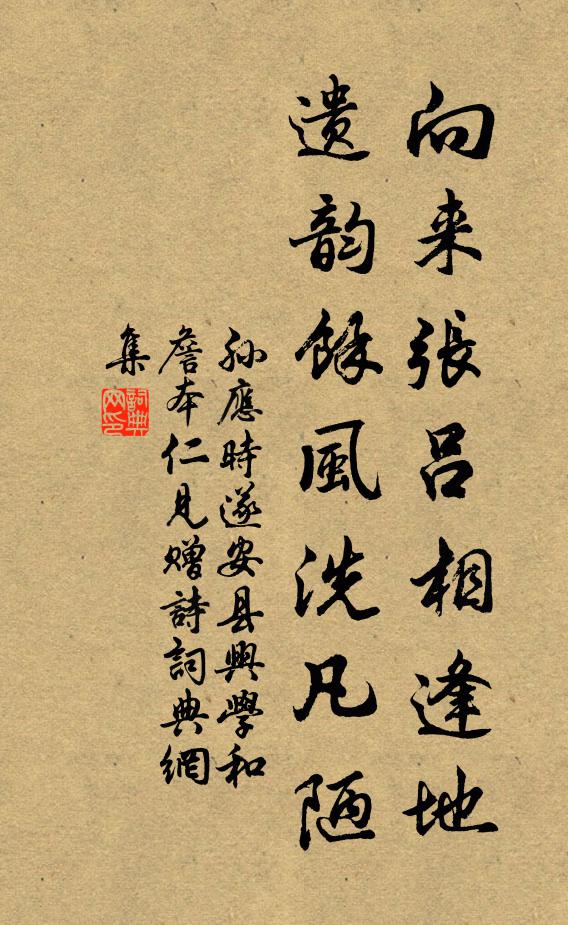 向来張吕相逢地
遗韵餘風洗凡陋
孙應時遂安县興學和
詹本仁見赠詩詞典網
集
詞典
网印